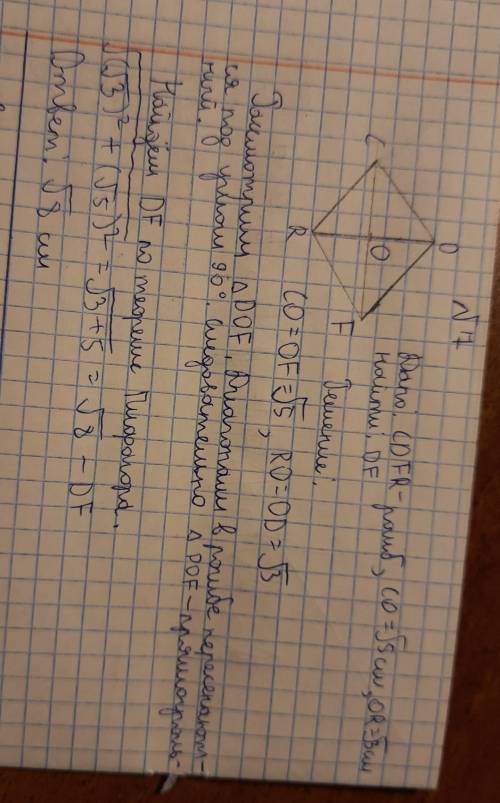 √7
Дано: CDFR-ромб, CO=√5см, OR=√3см
найти: DF
D
C
O
R
F
Решение:
CO=OF=√5, RO=OD=√3
Рассмотрим △DOF, Диагонали в ромбе пересекают-
ся под углом 90°. следовательно △DOF-прямоуголь-
ный.
Найдём DF по теореме Пифагора.
√(√3)²+(√5)² = √3+5 = √8 - DF
Ответ: √8 см